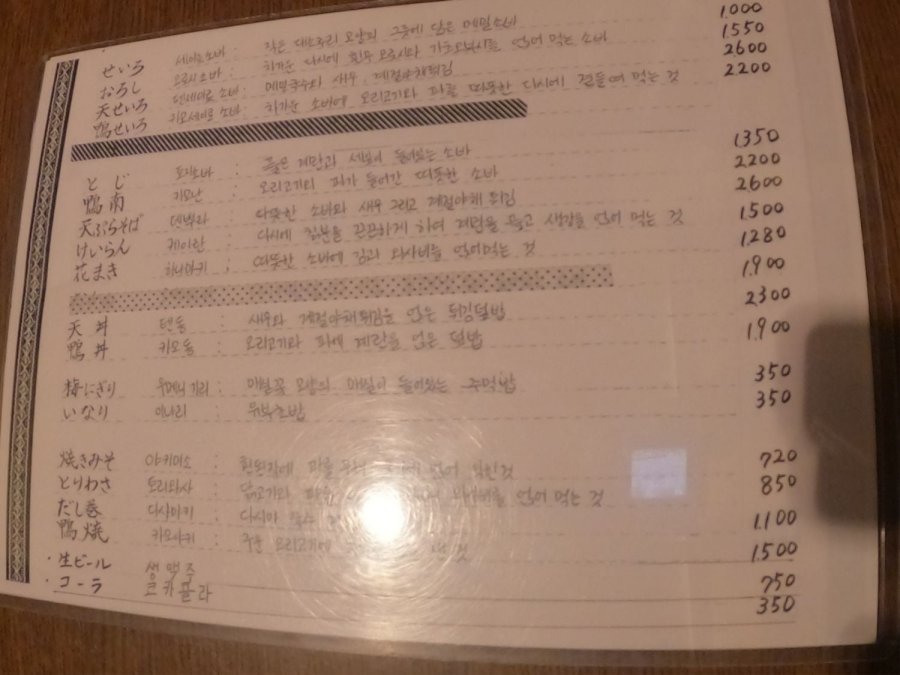 せいろ 세이로소바 : 작은 대소쿠리 모양의 그릇에 담은 메밀소바 1,000
おろし 오로시소바 : 차가운 다시에 흰무 오로시와 가츠오부시를 얹어 먹는 소바 1,550
天せいろ 덴세이로 소바 : 메밀국수와 새우, 계절야채튀김 2,600
鴨せいろ 키모세이로 소바 : 차가운 소바에 오리고기와 파를 따뜻한 다시에 곁들여 먹는 것 2,200
とじ 토지소바 : 풀은 계란과 세잎이 들어있는 소바 1,350
鴨南 키모난 : 오리고기와 파가 들어간 따뜻한 소바 2,200
天ぷらそば 덴뿌라 : 따뜻한 소바와 새우 그리고 계절야채 튀김 2,600
けいらん 케이란 : 다시에 칡분을 끈끈하게 하여 계란을 풀고 생강을 얹어 먹는 것 1,500
花まき 하나마키 : 따뜻한 소바에 김과 와사비를 얹어먹는 것 1,280
1,900
天丼 텐동 : 새우와 계절야채튀김을 얹은 튀김덮밥 2,300
鴨丼 키모동 : 오리고기와 파에 계란을 얹은 덮밥 1,900
梅にぎり 우메니기리 : 매실꽃 모양의 매실이 들어있는 주먹밥 350
いなり 이나리 : 유부초밥 350
焼きみそ 야키미소 : 흰된장에 파를 얹어 것 720
とりわさ 토리와사 : 닭고기와 파를 와사비를 얹어 먹는 것 850
だし巻 다시마키 : 다시아 1,100
鴨焼 키모야키 : 구운 오리고기에 것 1,500
・生ビール 생맥주 750
・コーラ 코카콜라 350